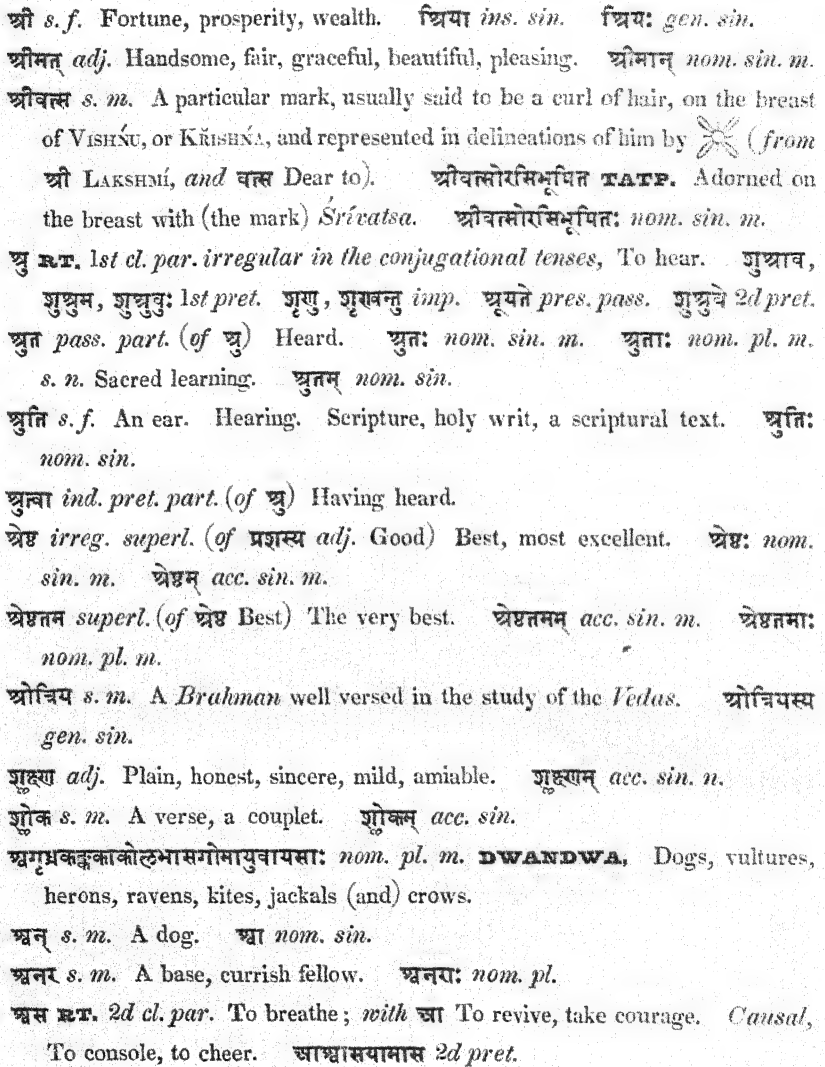 श्री s. f. Fortune, prosperity, wealth. श्रिया ins. sin. श्रियः gen. sin.
श्रीमत् adj. Handsome, fair, graceful, beautiful, pleasing. श्रीमान् nom. sin. m.
श्रीवत्स s. m. A particular mark, usually said to be a curl of hair, on the breast
of Vishńu, or Kr̆ishńa, and represented in delineations of him by (from
श्री Lakshmí, and वत्स Dear to). श्रीवत्सोरसिभूषित TATP. Adorned on
the breast with (the mark) Śrívatsa. श्रीवत्सोरसिभूषितः nom. sin. m.
श्रु RT. 1st cl. par. irregular in the conjugational tenses, To hear. शुश्राव,
शुश्रुम, शुश्रुवुः 1st pret. शृणु, शृण्वन्तु imp. श्रूयते pres. pass. शुश्रुवे 2d pret.
श्रुत pass. part. (of श्रु) Heard. श्रुतः nom. sin. m. श्रुताः nom. pl. m.
s. n. Sacred learning. श्रुतम् nom. sin.
श्रुति s. f. An ear. Hearing. Scripture, holy writ, a scriptural text. श्रुतिः
nom. sin.
श्रुत्वा ind. pret. part. (of श्रु) Having heard.
श्रेष्ठ irreg. superl. (of प्रशस्य adj. Good) Best, most excellent. श्रेष्ठः nom.
sin. m. श्रेष्ठम् acc. sin. m.
श्रेष्ठतम superl. (of श्रेष्ठ Best) The very best. श्रेष्ठतमम् acc. sin. m. श्रेष्ठतमाः
nom. pl. m.
श्रोत्रिय s. m. A Brahman well versed in the study of the Vedas. श्रोत्रियस्य
gen. sin.
श्लक्ष्ण adj. Plain, honest, sincere, mild, amiable. श्लक्ष्णम् acc. sin. n.
श्लोक s. m. A verse, a couplet. श्लोकम् acc. sin.
श्वगृध्रकङ्ककाकोलभासगोमायुवायसाः nom. pl. m. DWANDWA, Dogs, vultures,
herons, ravens, kites, jackals (and) crows.
श्वन् s. m. A dog. श्वा nom. sin.
श्वनर s. m. A base, currish fellow. श्वनराः nom. pl.
श्वस RT. 2d cl. par. To breathe; with आ To revive, take courage. Causal,
To console, to cheer. आश्वासयामास 2d pret.